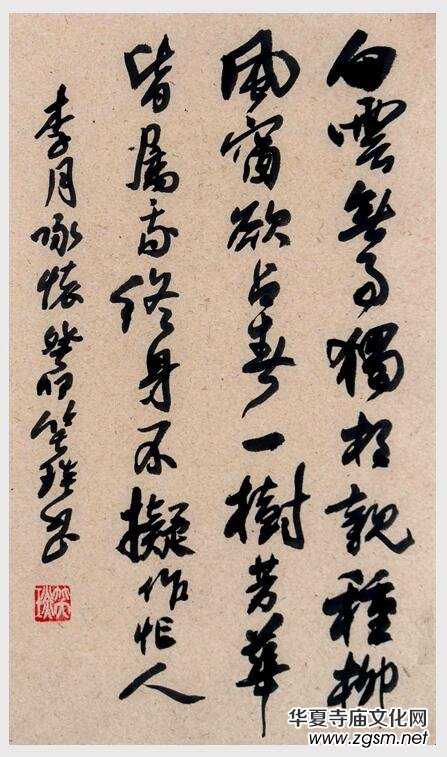 白雲無事獨相親種柳
風窗欲占春一樹芳華
皆屬我終身不擬作忙人
李月懷癸卯書
华夏寺庙文化网
www.zgsm.net